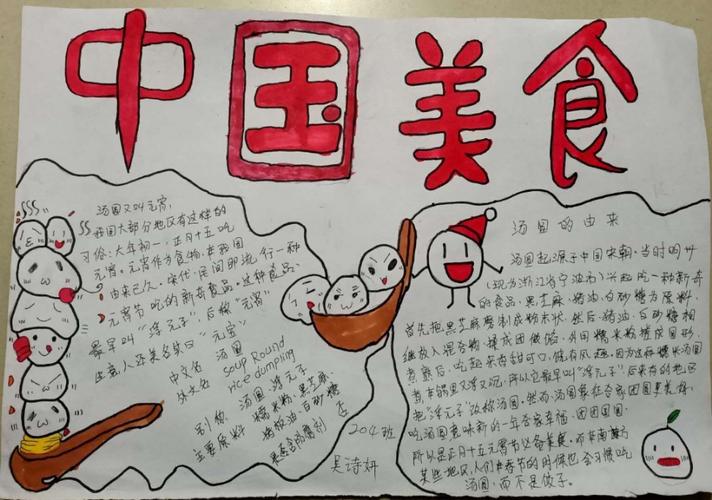 中国美食
汤圆又叫元宵,
我国大部分地区有这样的
习俗:大年初一、正月十五吃
元宵。元宵作为食物,在我国
由来已久。宋代,民间即流行一种
元宵节吃的新奇食品。这种食品,
最早叫“浮元子”后称“元宵”
生意人还美名其曰“元宝”
中文名 汤圆
外文名 soup Round
rice dumpling
别称 汤圆 浮元子
主要原料 糯米粉 黑芝麻
猪板油 白砂糖
是否含防腐剂 否
204班
吴诗妍
汤圆的由来
汤圆起源于中国宋朝。当时明州
(现为浙江省宁波市)兴起吃一种新奇
的食品,黑芝麻、猪油、白砂糖为原料,
首先把黑芝麻磨制成粉末状,然后,猪油、白砂糖相
继放入混合物,揉成团做馅,外用糯米粉揉成圆形,
煮熟后,吃起来香甜可口,饶有风趣。因为这种糯米汤圆
煮在锅里又浮又沉,所以它最早叫“浮元子”后来有的地区
把“浮元子”改称汤圆。然而,汤圆象征合家团圆美美好,
吃汤圆意味新的一年合家幸福、团团圆圆,
所以是正月十五元宵节必备美食。而在南方
某些地区,人们在春节的时候也会习惯吃
汤圆,而不是饺子。